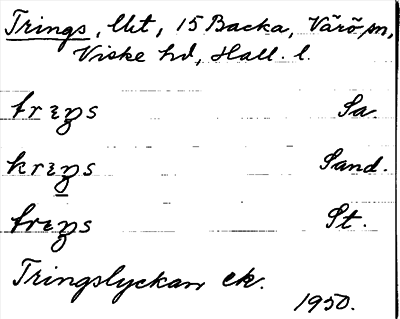 Trings, lht, 15 Backa, Värö sn,
Viske hd, Hall. l.
trɛŋs Sa.
krɛŋs Sand.
trɛŋs St.
Tringslyckan ek.
1950.